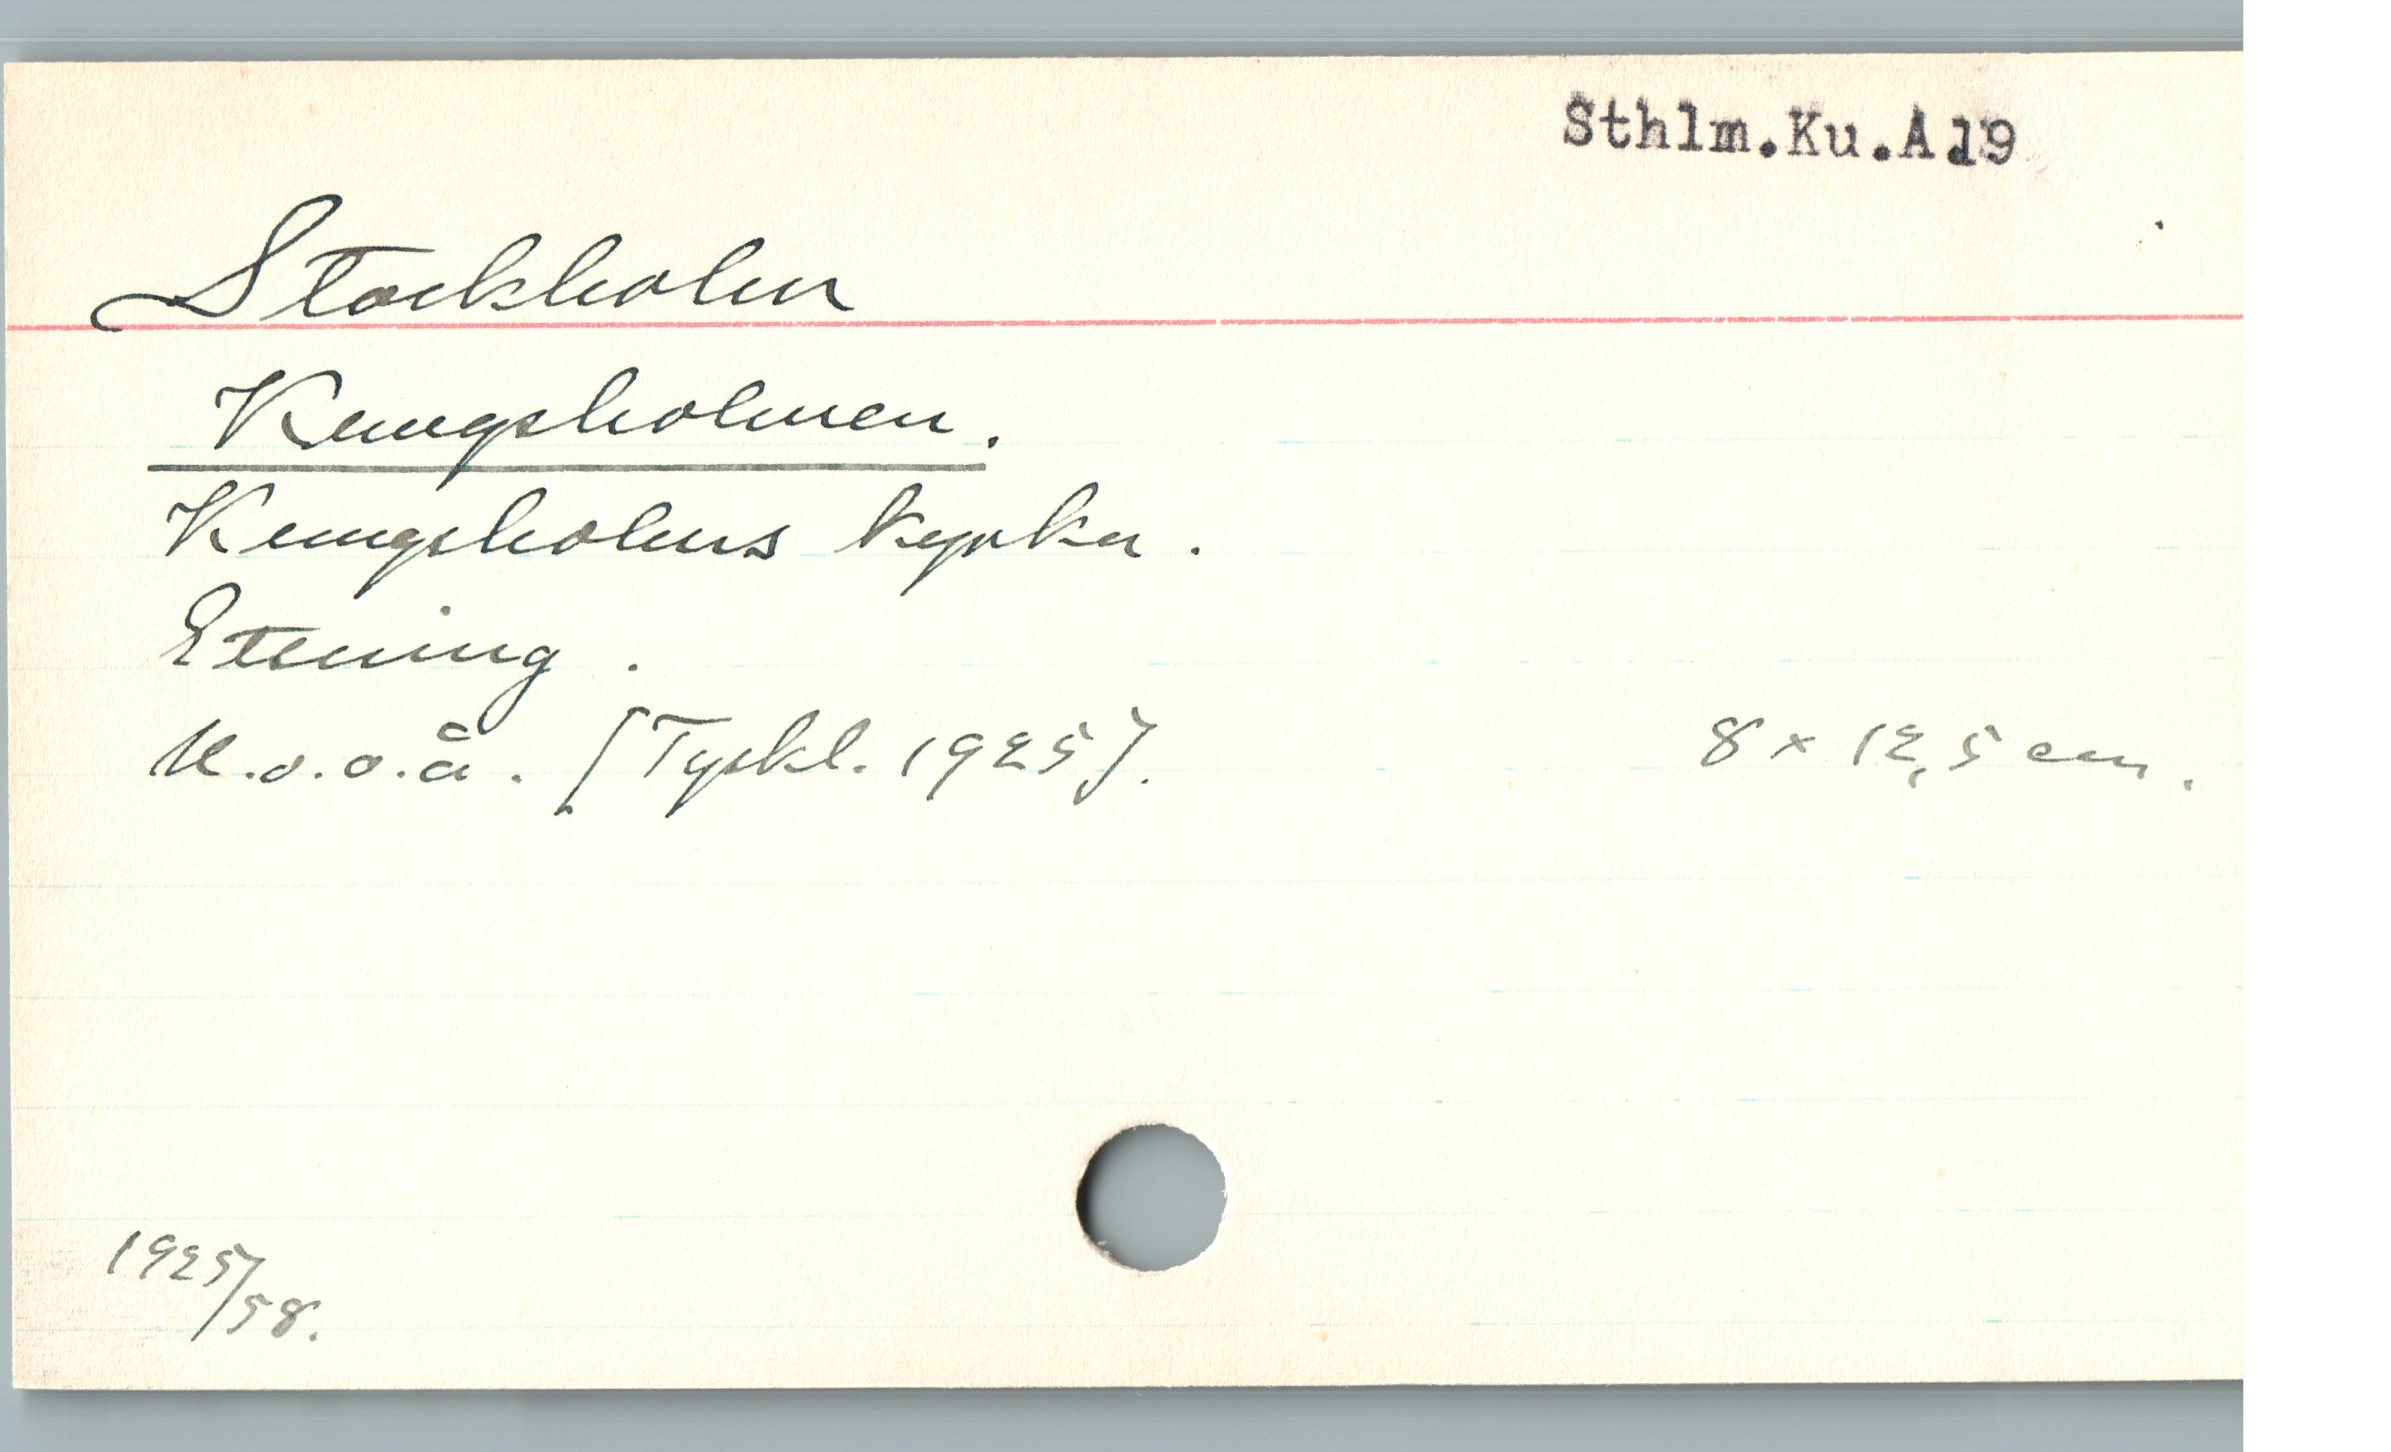 Sthlm.Ku.A.19
Stockholm
Kungsholmen.
Kungsholms kyrka.
Etsning.
U.o.o.å. [Tyskl. 1925]. 8 x 12,5 cm.
1925/58.